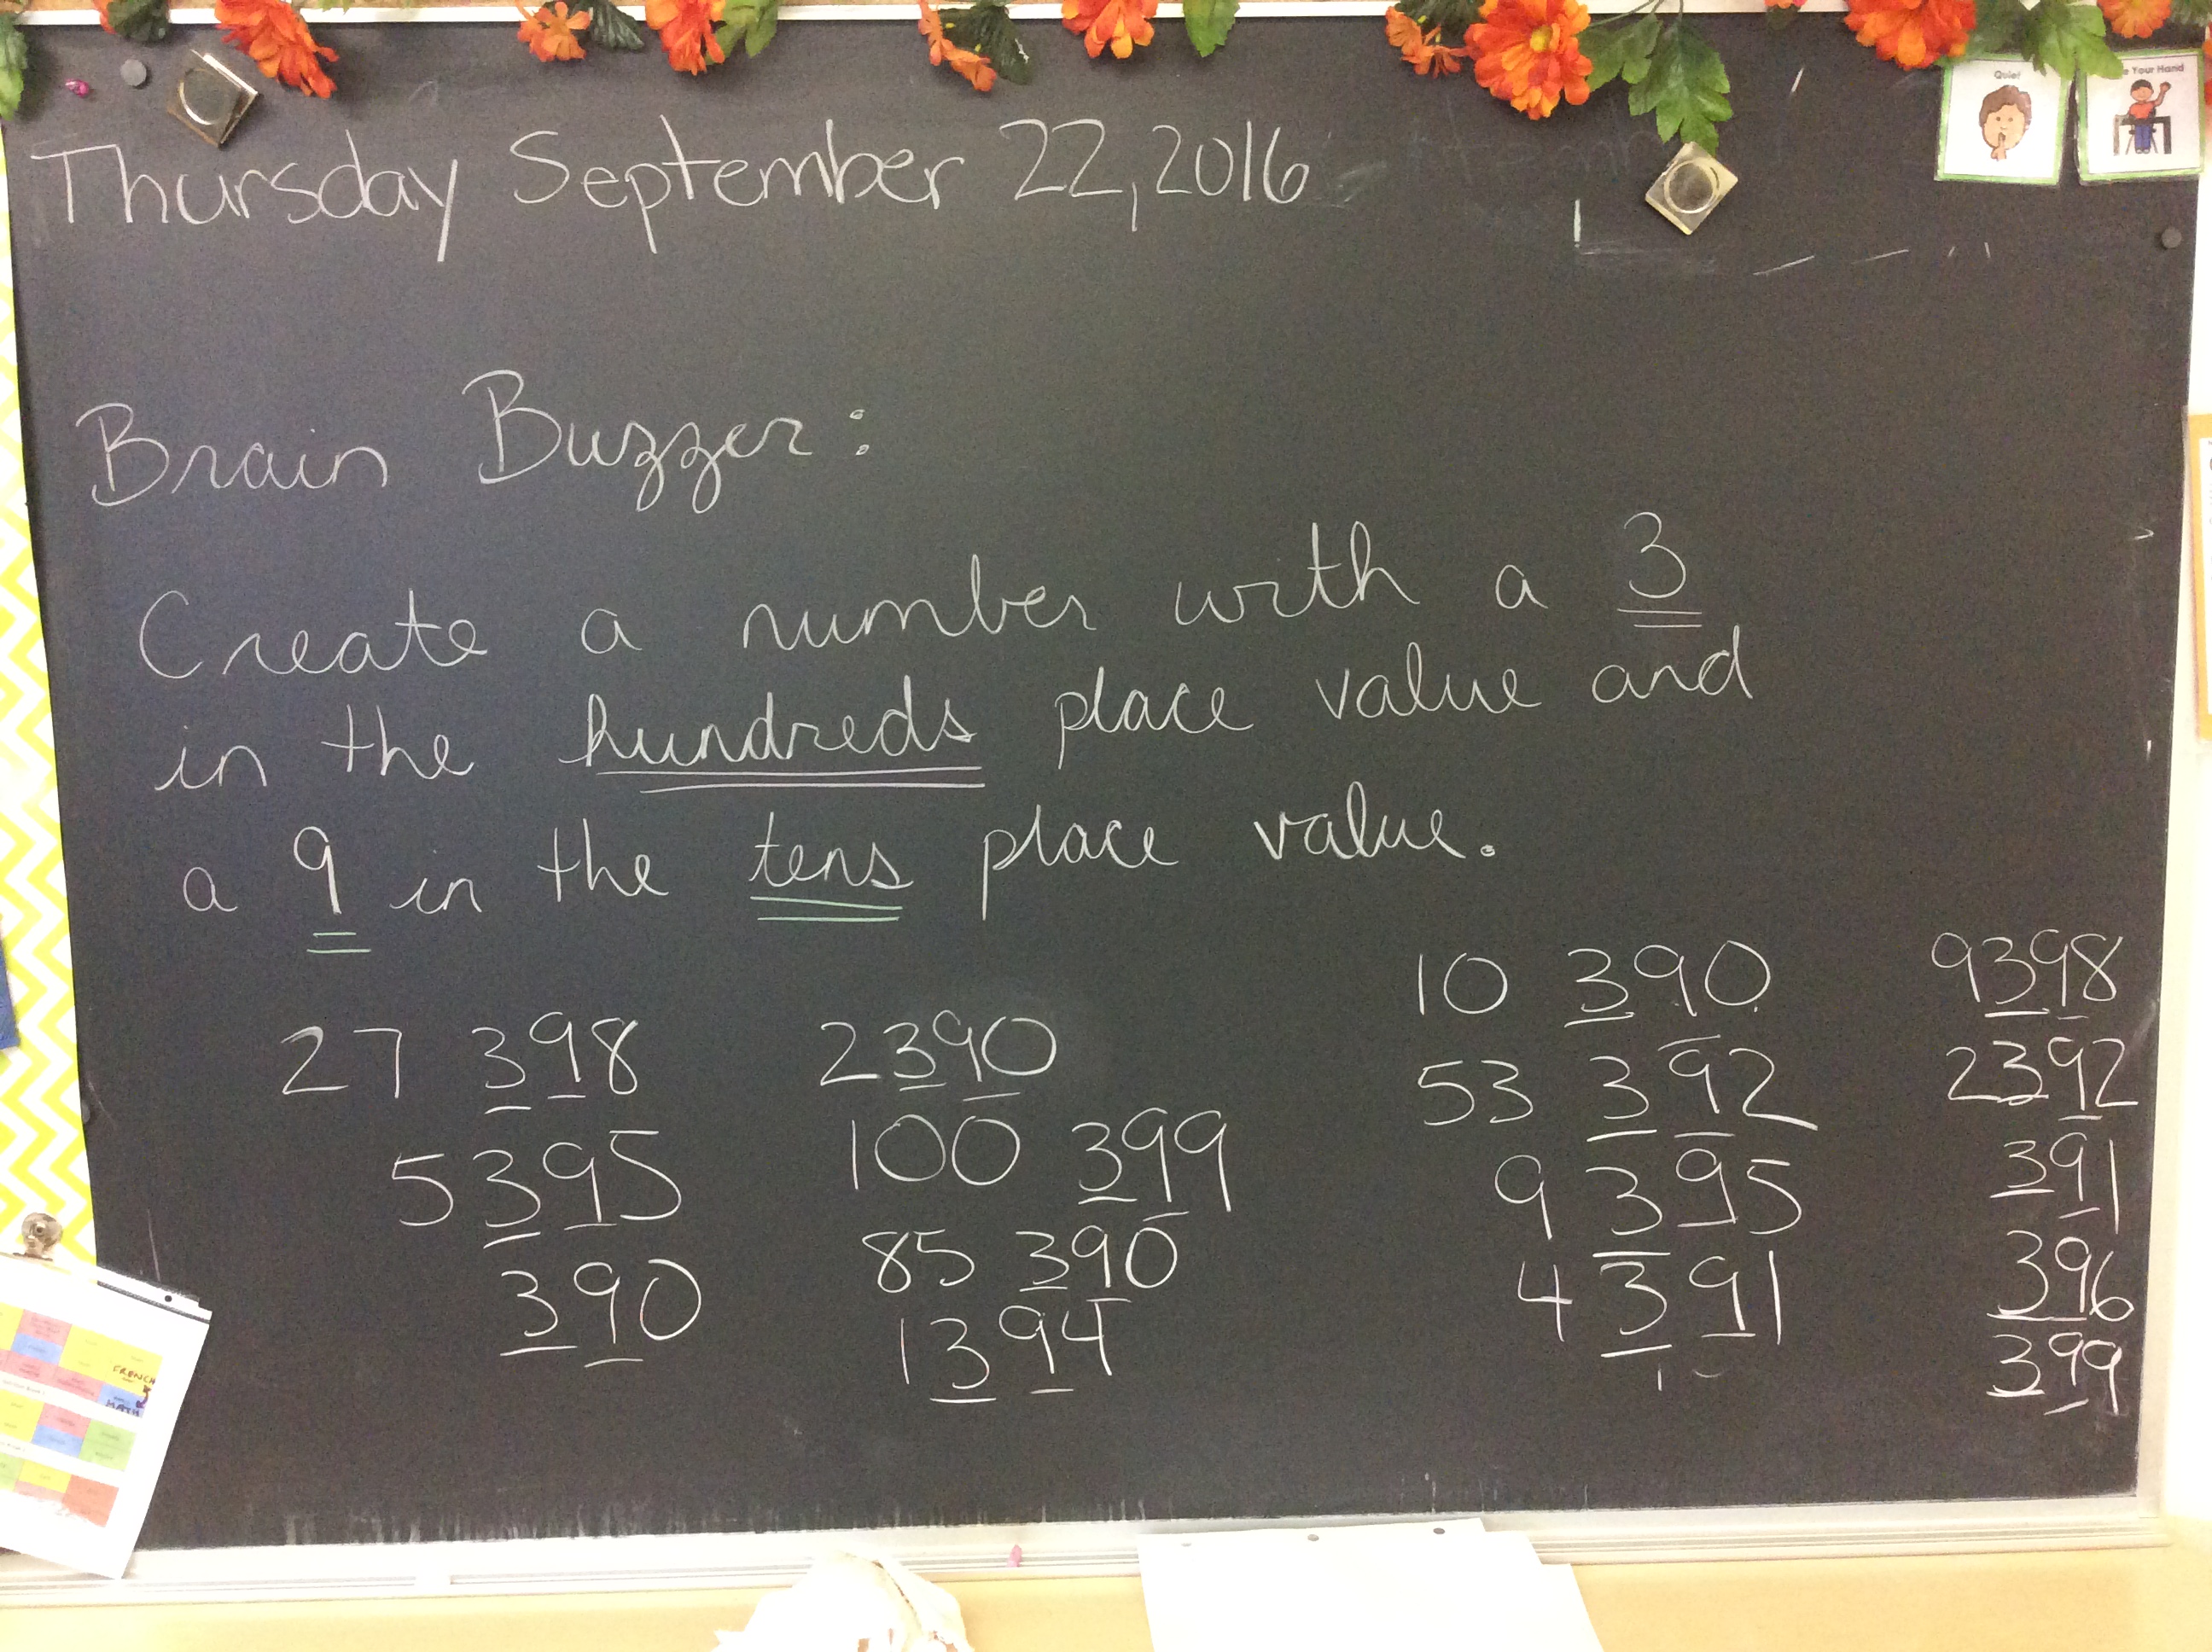 Thursday September 22, 2016
Quiet
e Your Hand
Brain Buzzer:
Create a number with a 3
in the hundreds place value and
a 9 in the tens place value.
27 398
5395
390
2390
100 399
85 390
1394
10 390
53 392
9 395
4 391
9398
2392
391
396
399
FRENCH
MATH